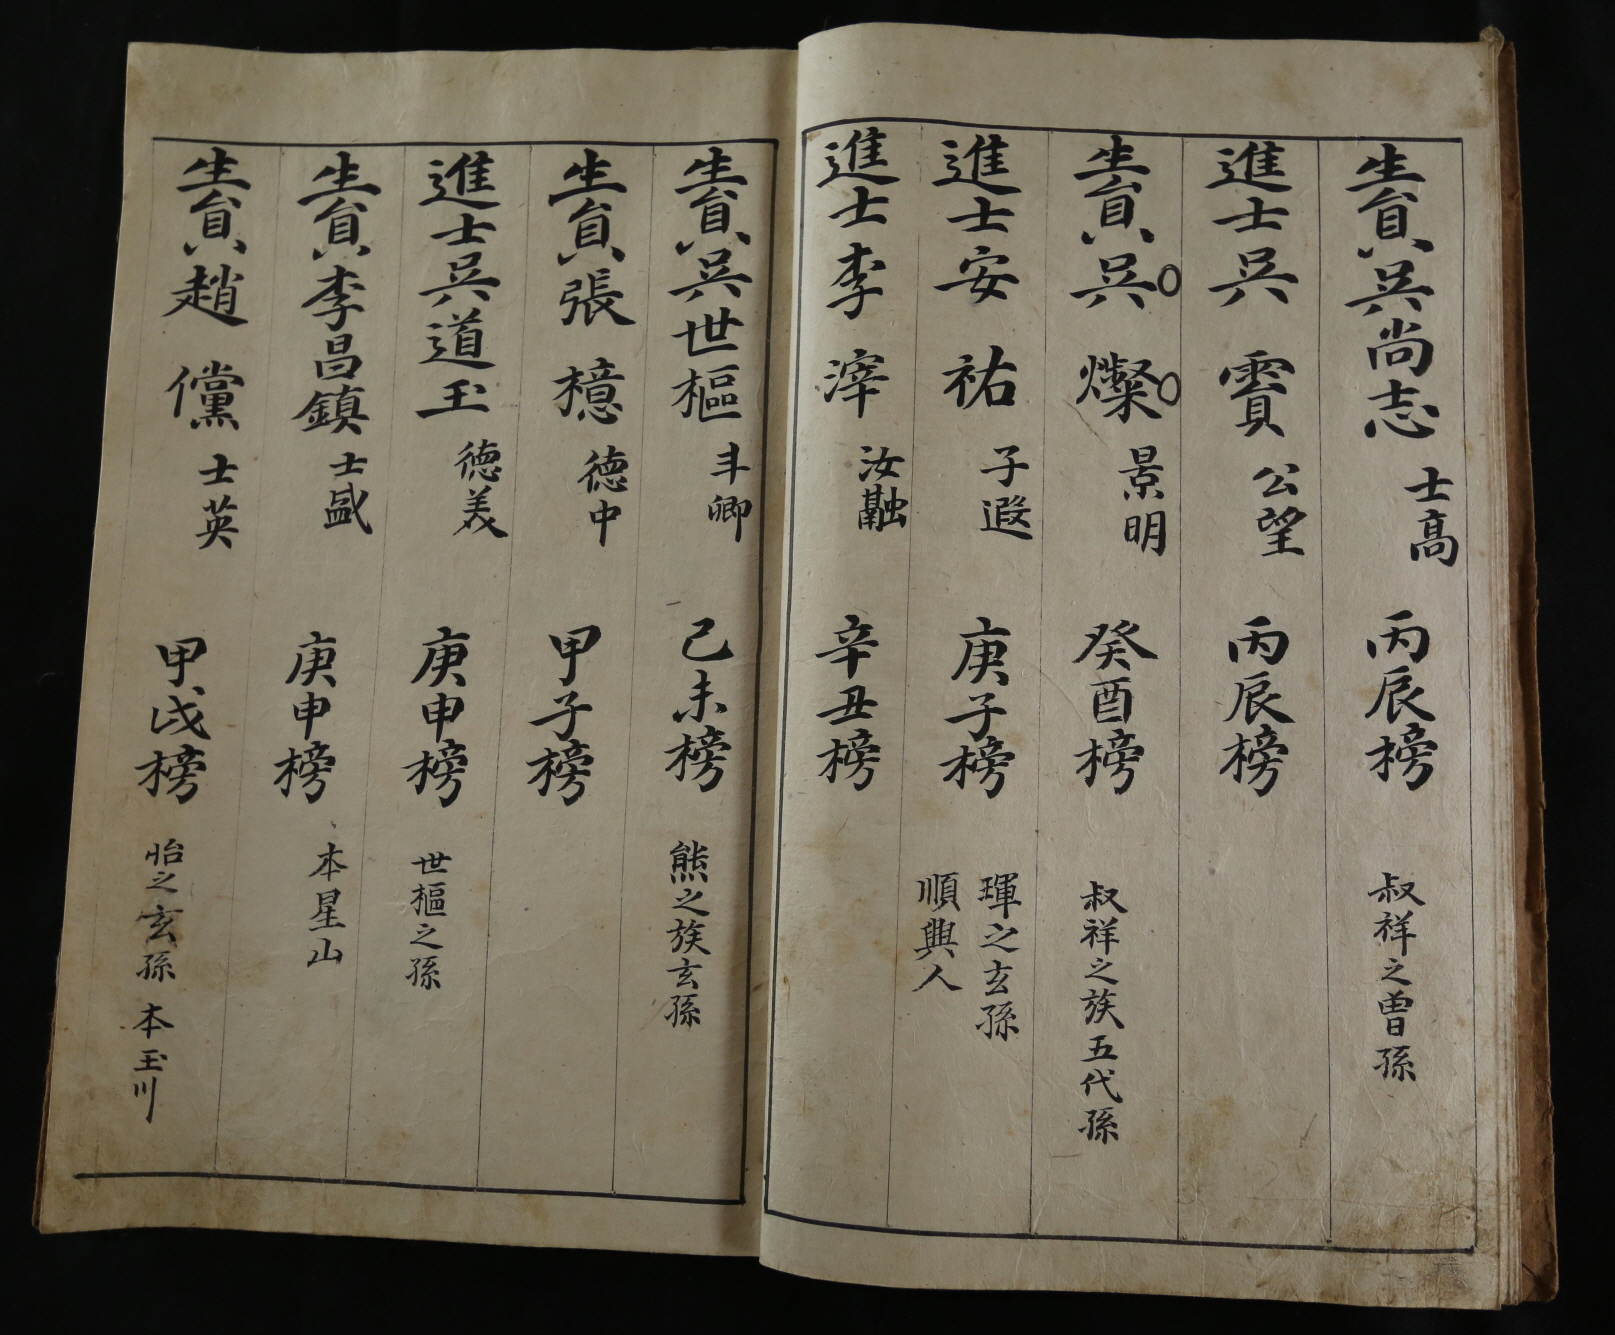 生員吳尚志 士高 丙辰榜 叔祥之曾孫
進士吳賓 公望 丙辰榜
生員吳燦 景明 癸酉榜 叔祥之族五代孫
進士安祐 子遐 庚子榜 琿之玄孫 順興人
進士李滓 汝融 辛丑榜
生員吳世樞 斗卿 己未榜 熊之族玄孫
生員張檍 德中 甲子榜
進士吳道玉 德義 庚申榜 世樞之孫
生員李昌鎮 士盛 庚申榜 本星山
生員趙儻 士英 甲戌榜 怡之玄孫 本玉川